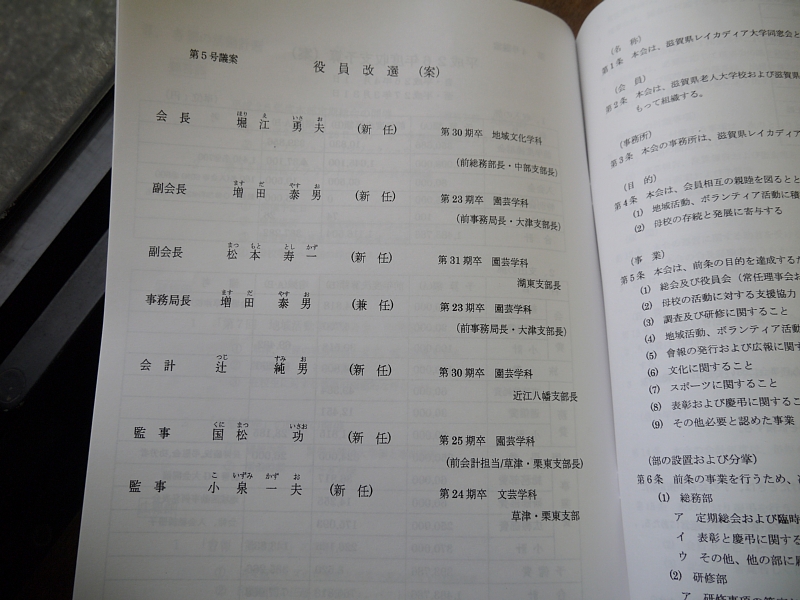 第5号議案
役員改選（案）
会長 堀江勇夫 （新任） 第30期卒 地域文化学科
ほり え いさ お
（前総務部長・中部支部長）
副会長 増田泰男 （新任） 第23期卒 園芸学科
ます だ やす お
（前事務局長・大津支部長）
副会長 松本寿一 （新任） 第31期卒 園芸学科
まつ もと とし かず
湖東支部長
事務局長 増田泰男 （兼任） 第23期卒 園芸学科
ます だ やす お
（前事務局長・大津支部長）
会計 辻純男 （新任） 第30期卒 園芸学科
つじ すみ お
近江八幡支部長
監事 国松功 （新任） 第25期卒 園芸学科
くに まつ いさお
（前会計担当/草津・栗東支部長）
監事 小泉一夫 （新任） 第24期卒 文芸学科
こ いずみ かず お
草津・栗東支部
（名 称）
第1条 本会は、滋賀県レイカディア大学同窓会と
（会 員）
第2条 本会は、滋賀県老人大学校および滋賀県
もって組織する。
（事務所）
第3条 本会の事務所は、滋賀県レイカディ
（目 的）
第4条 本会は、会員相互の親睦を図ると
(1) 地域活動、ボランティア活動に積
(2) 母校の存続と発展に寄与する
（事 業）
第5条 本会は、前条の目的を達成するた
(1) 総会及び役員会（常任理事会お
(2) 母校の活動に対する支援協力
(3) 調査及び研修に関すること
(4) 地域活動、ボランティア活動
(5) 會報の発行および広報に関す
(6) 文化に関すること
(7) スポーツに関すること
(8) 表彰および慶弔に関するこ
(9) その他必要と認めた事業
（部の設置および分掌）
第6条 前条の事業を行うため、
(1) 総務部
ア 定期総会および臨時
イ 表彰と慶弔に関する
ウ その他、他の部に属
(2) 研修部